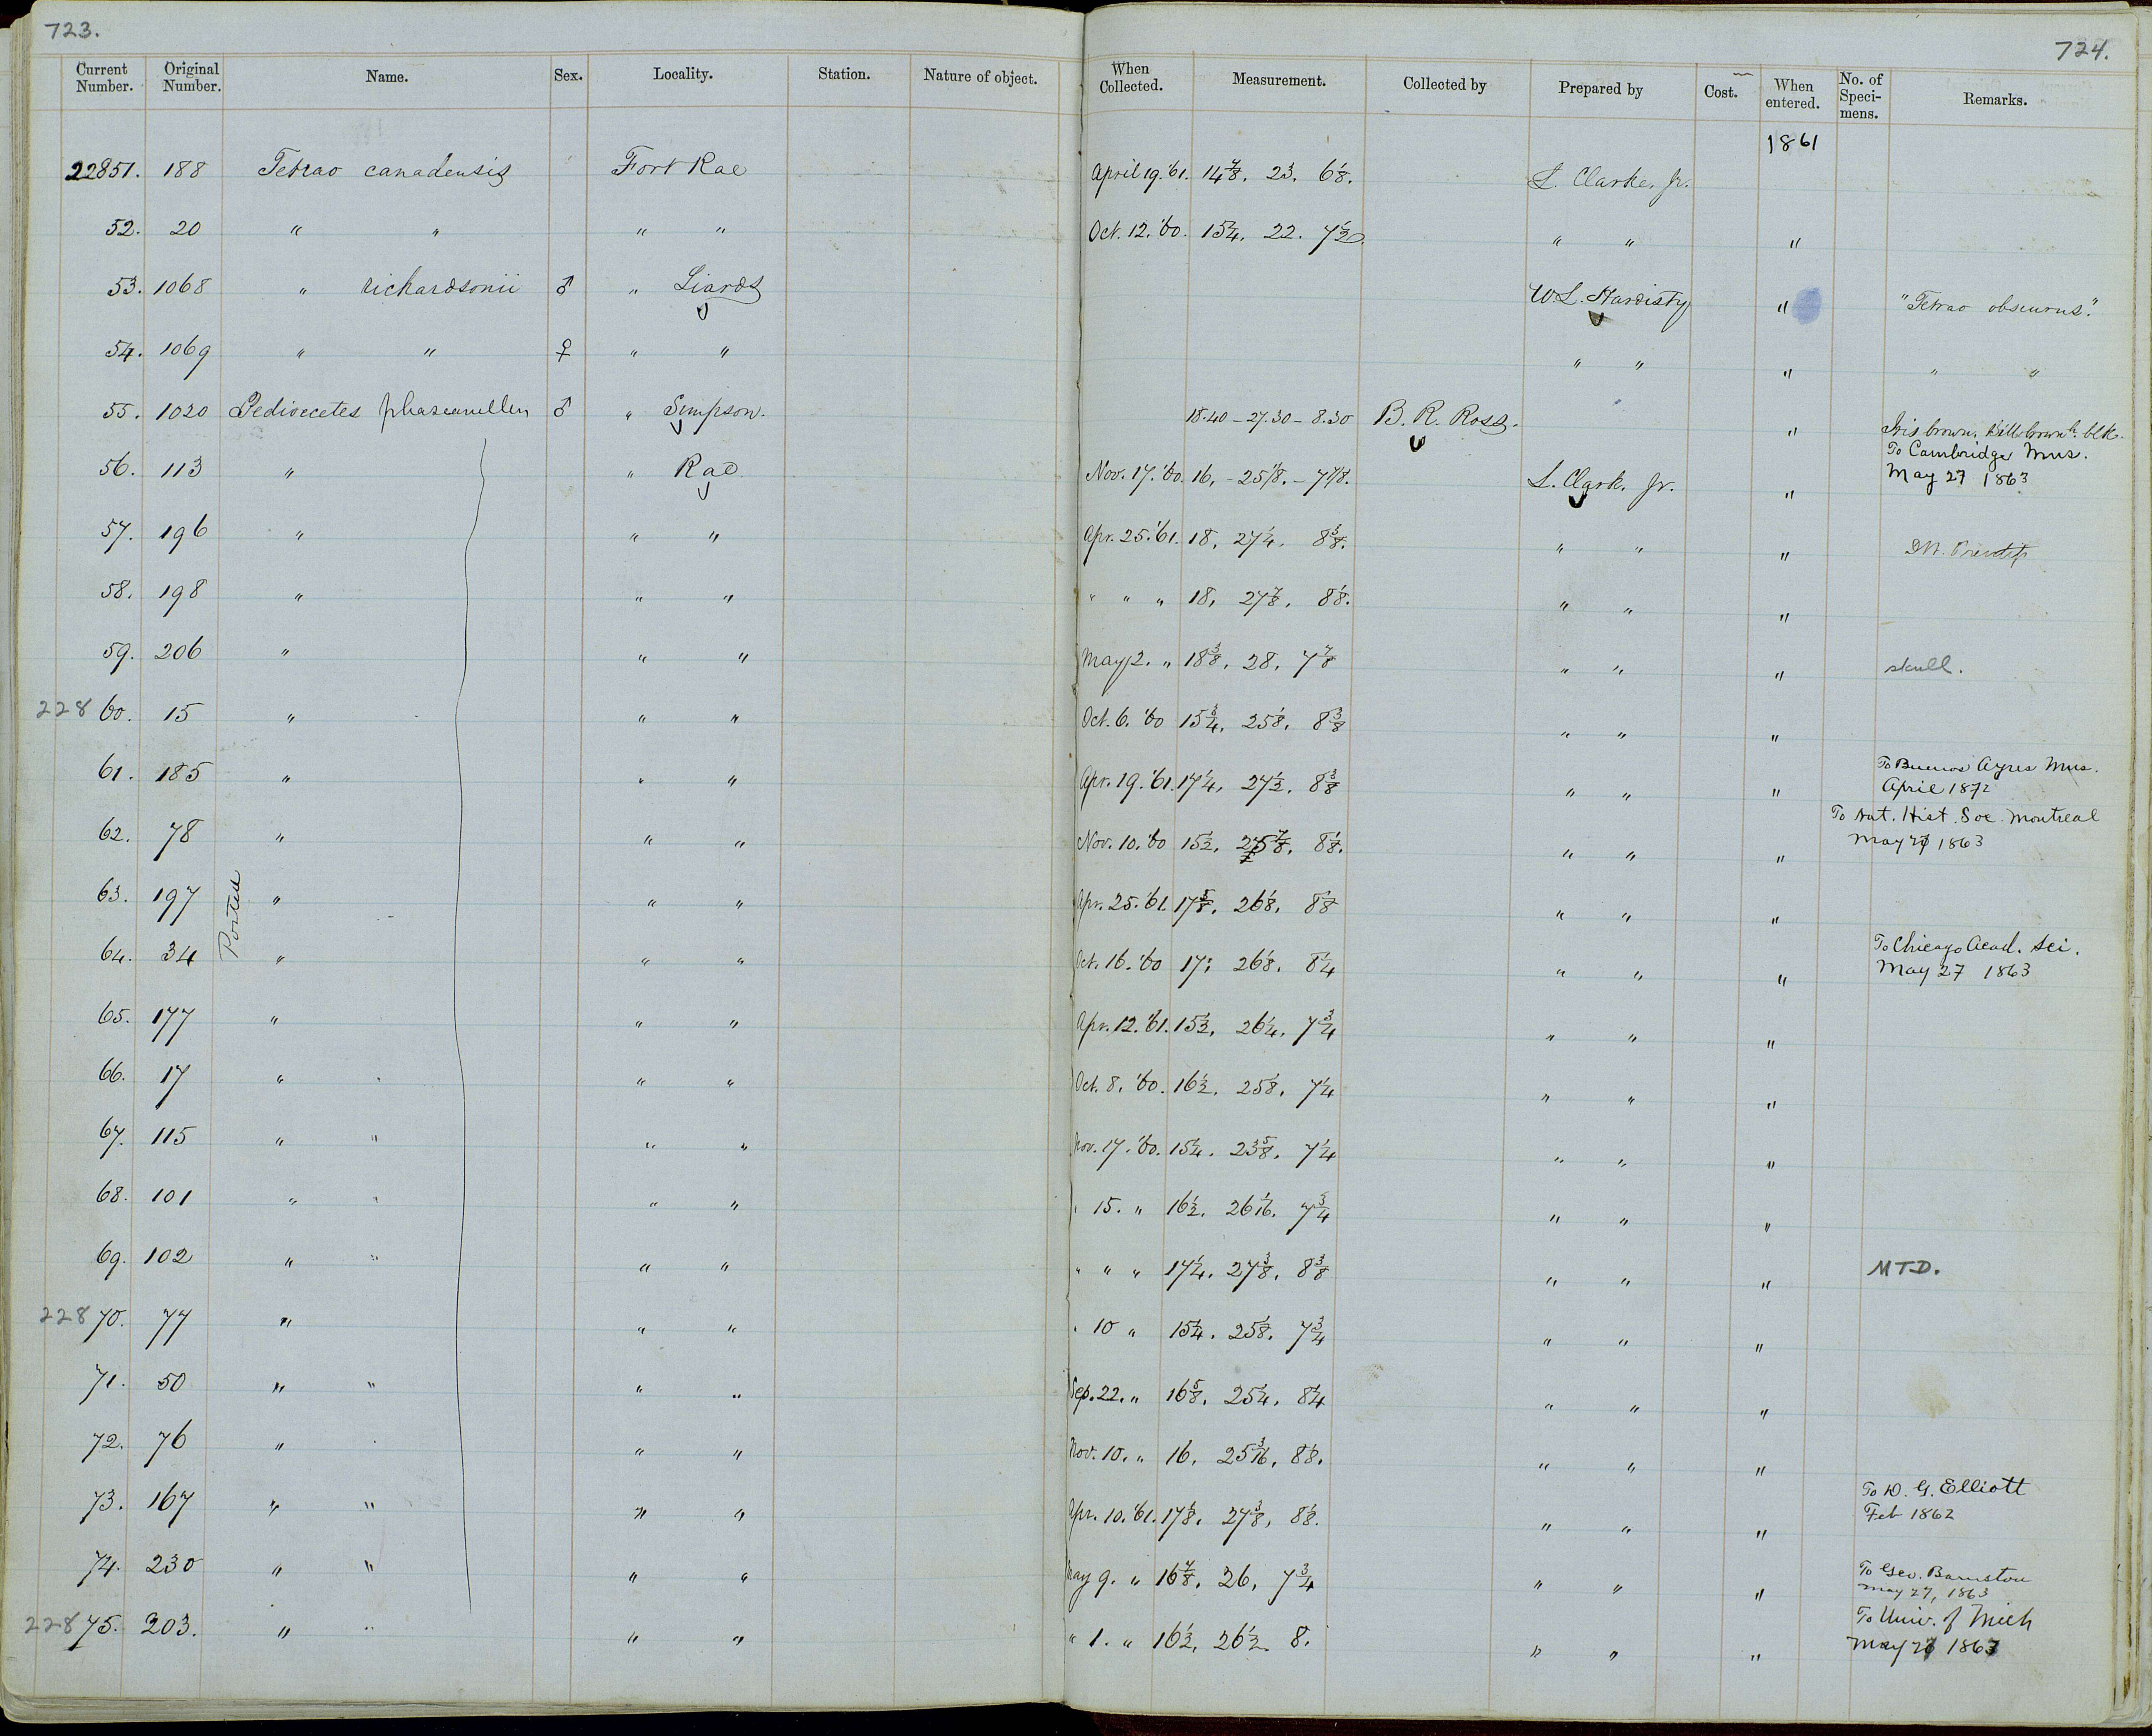 723.
724.
Current Number. Original Number. Name. Sex. Locality. Station. Nature of object. When Collected. Measurement. Collected by Prepared by Cost. When entered. No. of Speci-mens. Remarks.
1861
22851. 188 Tetrao canadensis Fort Rae April 19. '61. 14 7/8. 23. 6 1/8. L. Clarke, Jr.
52. 20 " " " " Oct. 12. '60. 15 1/4. 22. 7 1/2. " " "
53. 1068 " richardsonii ♂ " Liards W L. Hardisty " "Tetrao obscurus."
54. 1069 " " ♀ " " " " " " "
55. 1020 Pediocetes phasianellus ♂ " Simpson. 18.40 - 27.30 - 8.30 B. R. Ross. " Iris brown. Bill brown h. blk.
56. 113 " " Rae Nov. 17. '60. 16. - 25 1/8. - 7 7/8. L. Clark. Jr. " To Cambridge Mus. May 27 1863
57. 196 " " " Apr. 25. '61. 18. 27 1/4. 8 3/8. " " "
58. 198 " " " " " " 18. 27 7/8. 8 1/8. " " "
59. 206 " " " May 2. " 18 3/8. 28. 7 7/8 " " " skull.
22860. 15 " " " Oct. 6. '60 15 3/4. 25 1/8. 8 3/8 " " "
61. 185 " " " Apr. 19. '61. 17 1/4. 27 1/2. 8 3/8 " " " To Buenos Ayres Mus. April 1872
62. 78 " " " Nov. 10. '60 15 1/2. 25 7/8. 8 1/8. " " " To Nat. Hist. Soc. Montreal May 27 1863
Posted
63. 197 " " " Apr. 25. '61. 17 5/8. 26 1/8. 8 1/8 " " "
64. 34 " " " Oct. 16. '60 17. 26 1/8. 8 1/4 " " " To Chicago Acad. Sci. May 27 1863
65. 177 " " " Apr. 12. '61. 15 1/2. 26 1/4. 7 3/4 " " "
66. 17 " " " Oct. 8. '60. 16 1/2. 25 1/8. 7 1/4 " " "
67. 115 " " " " Nov. 17. '60. 15 1/4. 23 5/8. 7 1/4 " " "
68. 101 " " " " " 15. " 16 1/2. 26 1/16. 7 3/4 " " "
69. 102 " " " " " " " 17 1/4. 27 3/8. 8 3/8 " " " MTD.
22870. 77 " " " " 10 " 15 1/4. 25 1/8. 7 3/4 " " "
71. 50 " " " " Sep. 22. " 16 5/8. 25 1/4. 8 1/4 " " "
72. 76 " " " Nov. 10. " 16. 25 3/16. 8 1/8. " " "
73. 167 " " " " Apr. 10. '61. 17 1/8. 27 3/8. 8 1/8. " " " To D. G. Elliott Feb 1862
74. 230 " " " " May 9. " 16 7/8. 26. 7 3/4 " " " To Geo. Barnston May 27, 1863
22875. 203. " " " " " 1. " 16 1/2. 26 1/2. 8. " " " To Univ. of Mich May 27 1863